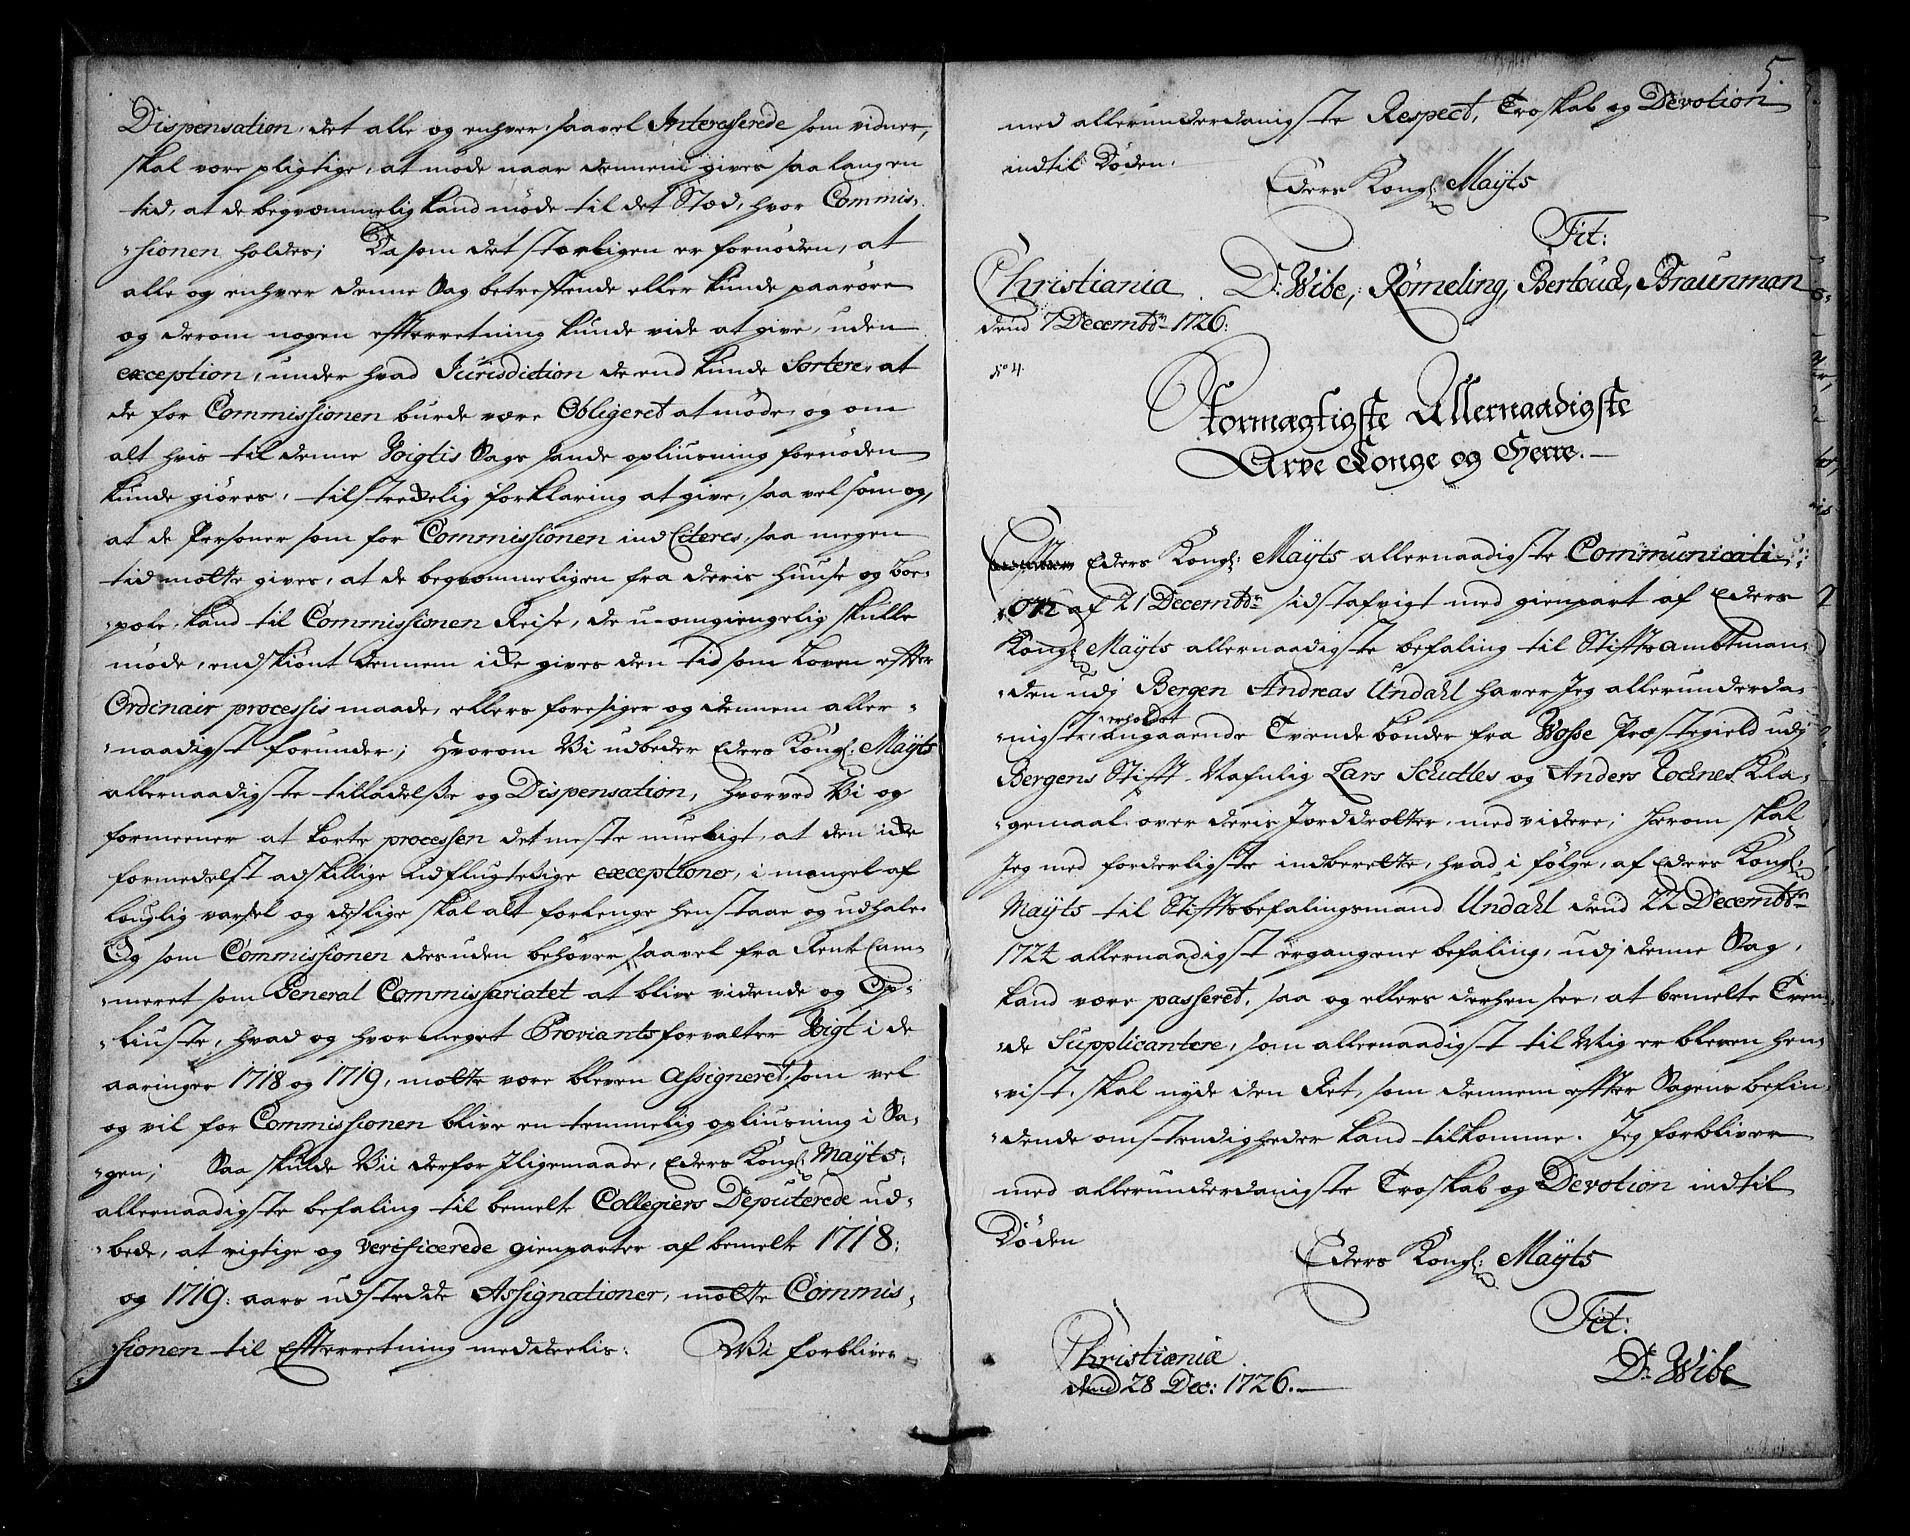 Dispensation, det alle og enhver, saavel Interesserede som vidner,
skal være pligtige, at møde naar dennem gives saa langen
tid, at de beqvæmmelig kand møde til det Stæd, hvor Commis-
sionen holdes; Da som det storligen er fornøden, at
alle og enhver denne Sag betreffende eller kunde paarøre
og derom nogen effterretning kunde vide at give, uden
exception, under hvad Jurisdiction de end kunde Sortere, at
de for Commissionen burde være Obligeret at møde, og om
alt hvis til denne Voigtis Sags sande opliusning fornøden
kunde giøres, tilstreckelig forklaring at give, saa vel som og,
at de Personer som for Commissionen ind Citeres, saa megen
tid motte gives, at de beqvemmeligen fra deris huuse og Boe-
pæle kand til Commissionen Reise, de u-omgiengelig skulle
møde, endskiønt dennem icke gives den tid som Loven effter
Ordinair processis maade, ellers foresiger og dennem aller-
naadigst forunder; Hvorom Vi udbeder Eders Kongl: Mayts
allernaadigste tilladelsse og Dispensation, hvorved Vi og
formeener at korte processen det meste mueligt, at den icke
formedelst adskillige udflugtelige exceptioner, i mangel af
louglig varsel og deslige skal alt forlenge henstaae og udhale.
Og som Commissionen desuden behøver saavel fra Rente Cam-
meret som General Commissariatet at blive vidende og Op-
liuste, hvad og hvormeget Proviantsforvalter Voigt i de
aaringer 1718 og 1719, motte være bleven assigneret, som vel
og vil for Commissionen blive en temmelig opliusning i Sa-
gen; Saa skulde Vii derfor Iligemaade, Eders Kongl: Mayts:
allernaadigste befaling til bemelte Collegiers Deputerede ud-
bede, at rigtige og verificerede gienparter af bemelte 1718:
og 1719: aars udstedde Assignationer, motte Commis-
sionen til Effterretning meddeelis: Vi forbliver
5.
med allerunderdanigste Respect, Troskab og Devotion
indtil Døden.
Eders Kongl: Mayts
Tit:
Christiania D: Wibe, Rømeling, Bertoud, Braunman
dend 7 Decembr 1726:
No 4.
Stormægtigste Allernaadigste
Arve Konge og Herre.
Eders Kongl: Mayts allernaadigste Communicati-
on af 21 Decembr sidstafvigt med gienpart af Eders
Kongl: Mayts allernaadigste befaling til Stifftsambtman-
den udj Bergen Andreas Undahl haver Jeg allerunderda-
nigst erholdet angaaende Tvende bønder fra Wosse Præstegield udj
Bergens Stifft Nafnlig Lars Scudtles og Anders Tocknes Kla-
gemaal over deris Jorddrotter med videre; herom skal
Jeg med forderligste indberette, hvad i følge, af Eders Kongl:
Mayts til Stifftsbefalingsmand Undahl dend 22 Decembr
1724 allernaadigst ergangene befaling, udj denne Sag,
kand være passeret, saa og ellers derhen see, at bemelte Tven-
de Supplicantere, som allernaadigst til Mig er bleven hen-
vist, skal nyde den Ret, som dennem effter Sagens befin-
dende omstendigheder kand tilkomme. Jeg forbliver
med allerunderdanigste Troskab og Devotion indtil
Døden
Eders Kongl: Mayts
Tit:
Christiania
dend 28 Dec: 1726.
D: Wibe